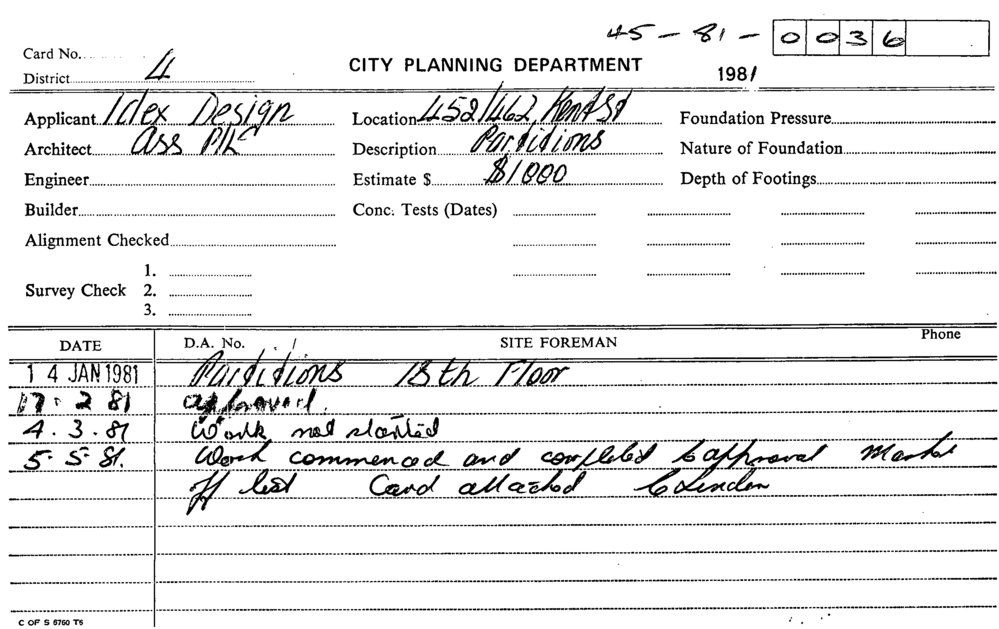 45 - 81 - 0036
Card No.
District 4
CITY PLANNING DEPARTMENT
1981
Applicant Idex Design
Location 452/462 Kent St
Foundation Pressure
Architect Ass P/L
Description Partitions
Nature of Foundation
Engineer
Estimate $ $1000
Depth of Footings
Builder
Conc. Tests (Dates)
Alignment Checked
1.
Survey Check 2.
3.
DATE D.A. No. SITE FOREMAN Phone
14 JAN 1981 Partitions 13th Floor
17. 2 81 approved.
4. 3. 81 Work not started
5. 5 81. Work commenced and completed to approval
off list Card attached
C OF S 6760 T6